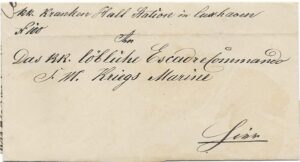 kk. Kranken Halt Station in Cuxhaven
An
Das kk. löbliche Escadre Commando
S. M. Kriegs Marine
Hier